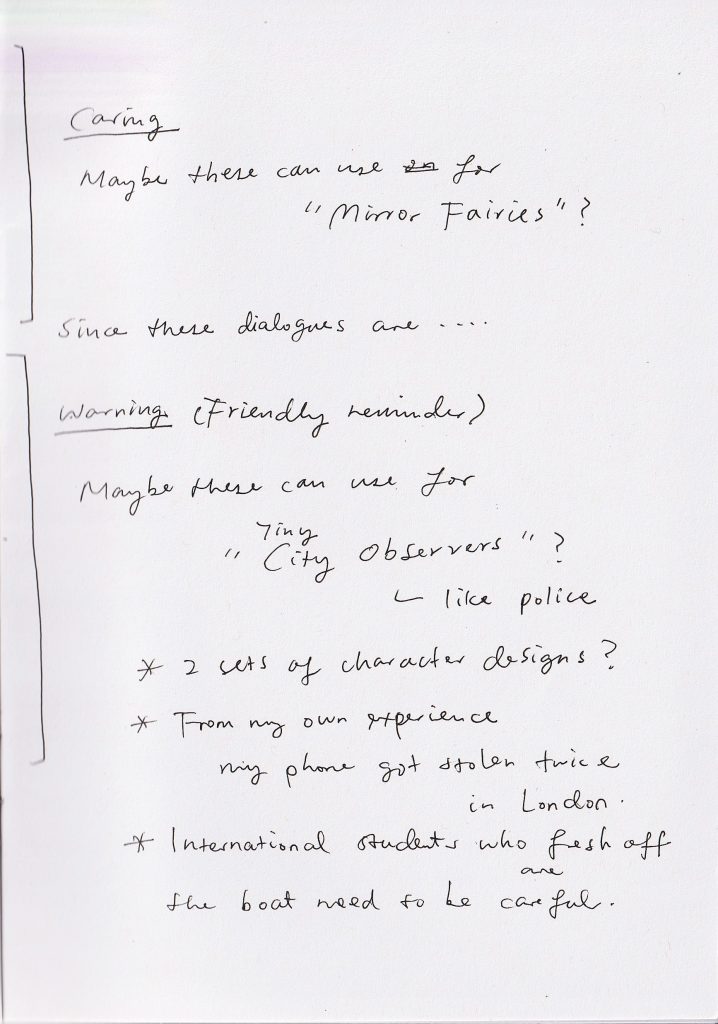 Caring
Maybe these can use for
"Mirror Fairies"?
Since these dialogues are ....
Warning (Friendly reminder)
Maybe these can use for
Tiny
"City Observers"?
like police
* 2 sets of character designs?
* From my own experience
my phone got stolen twice
in London.
* International students who fresh off
are
the boat need to be careful.